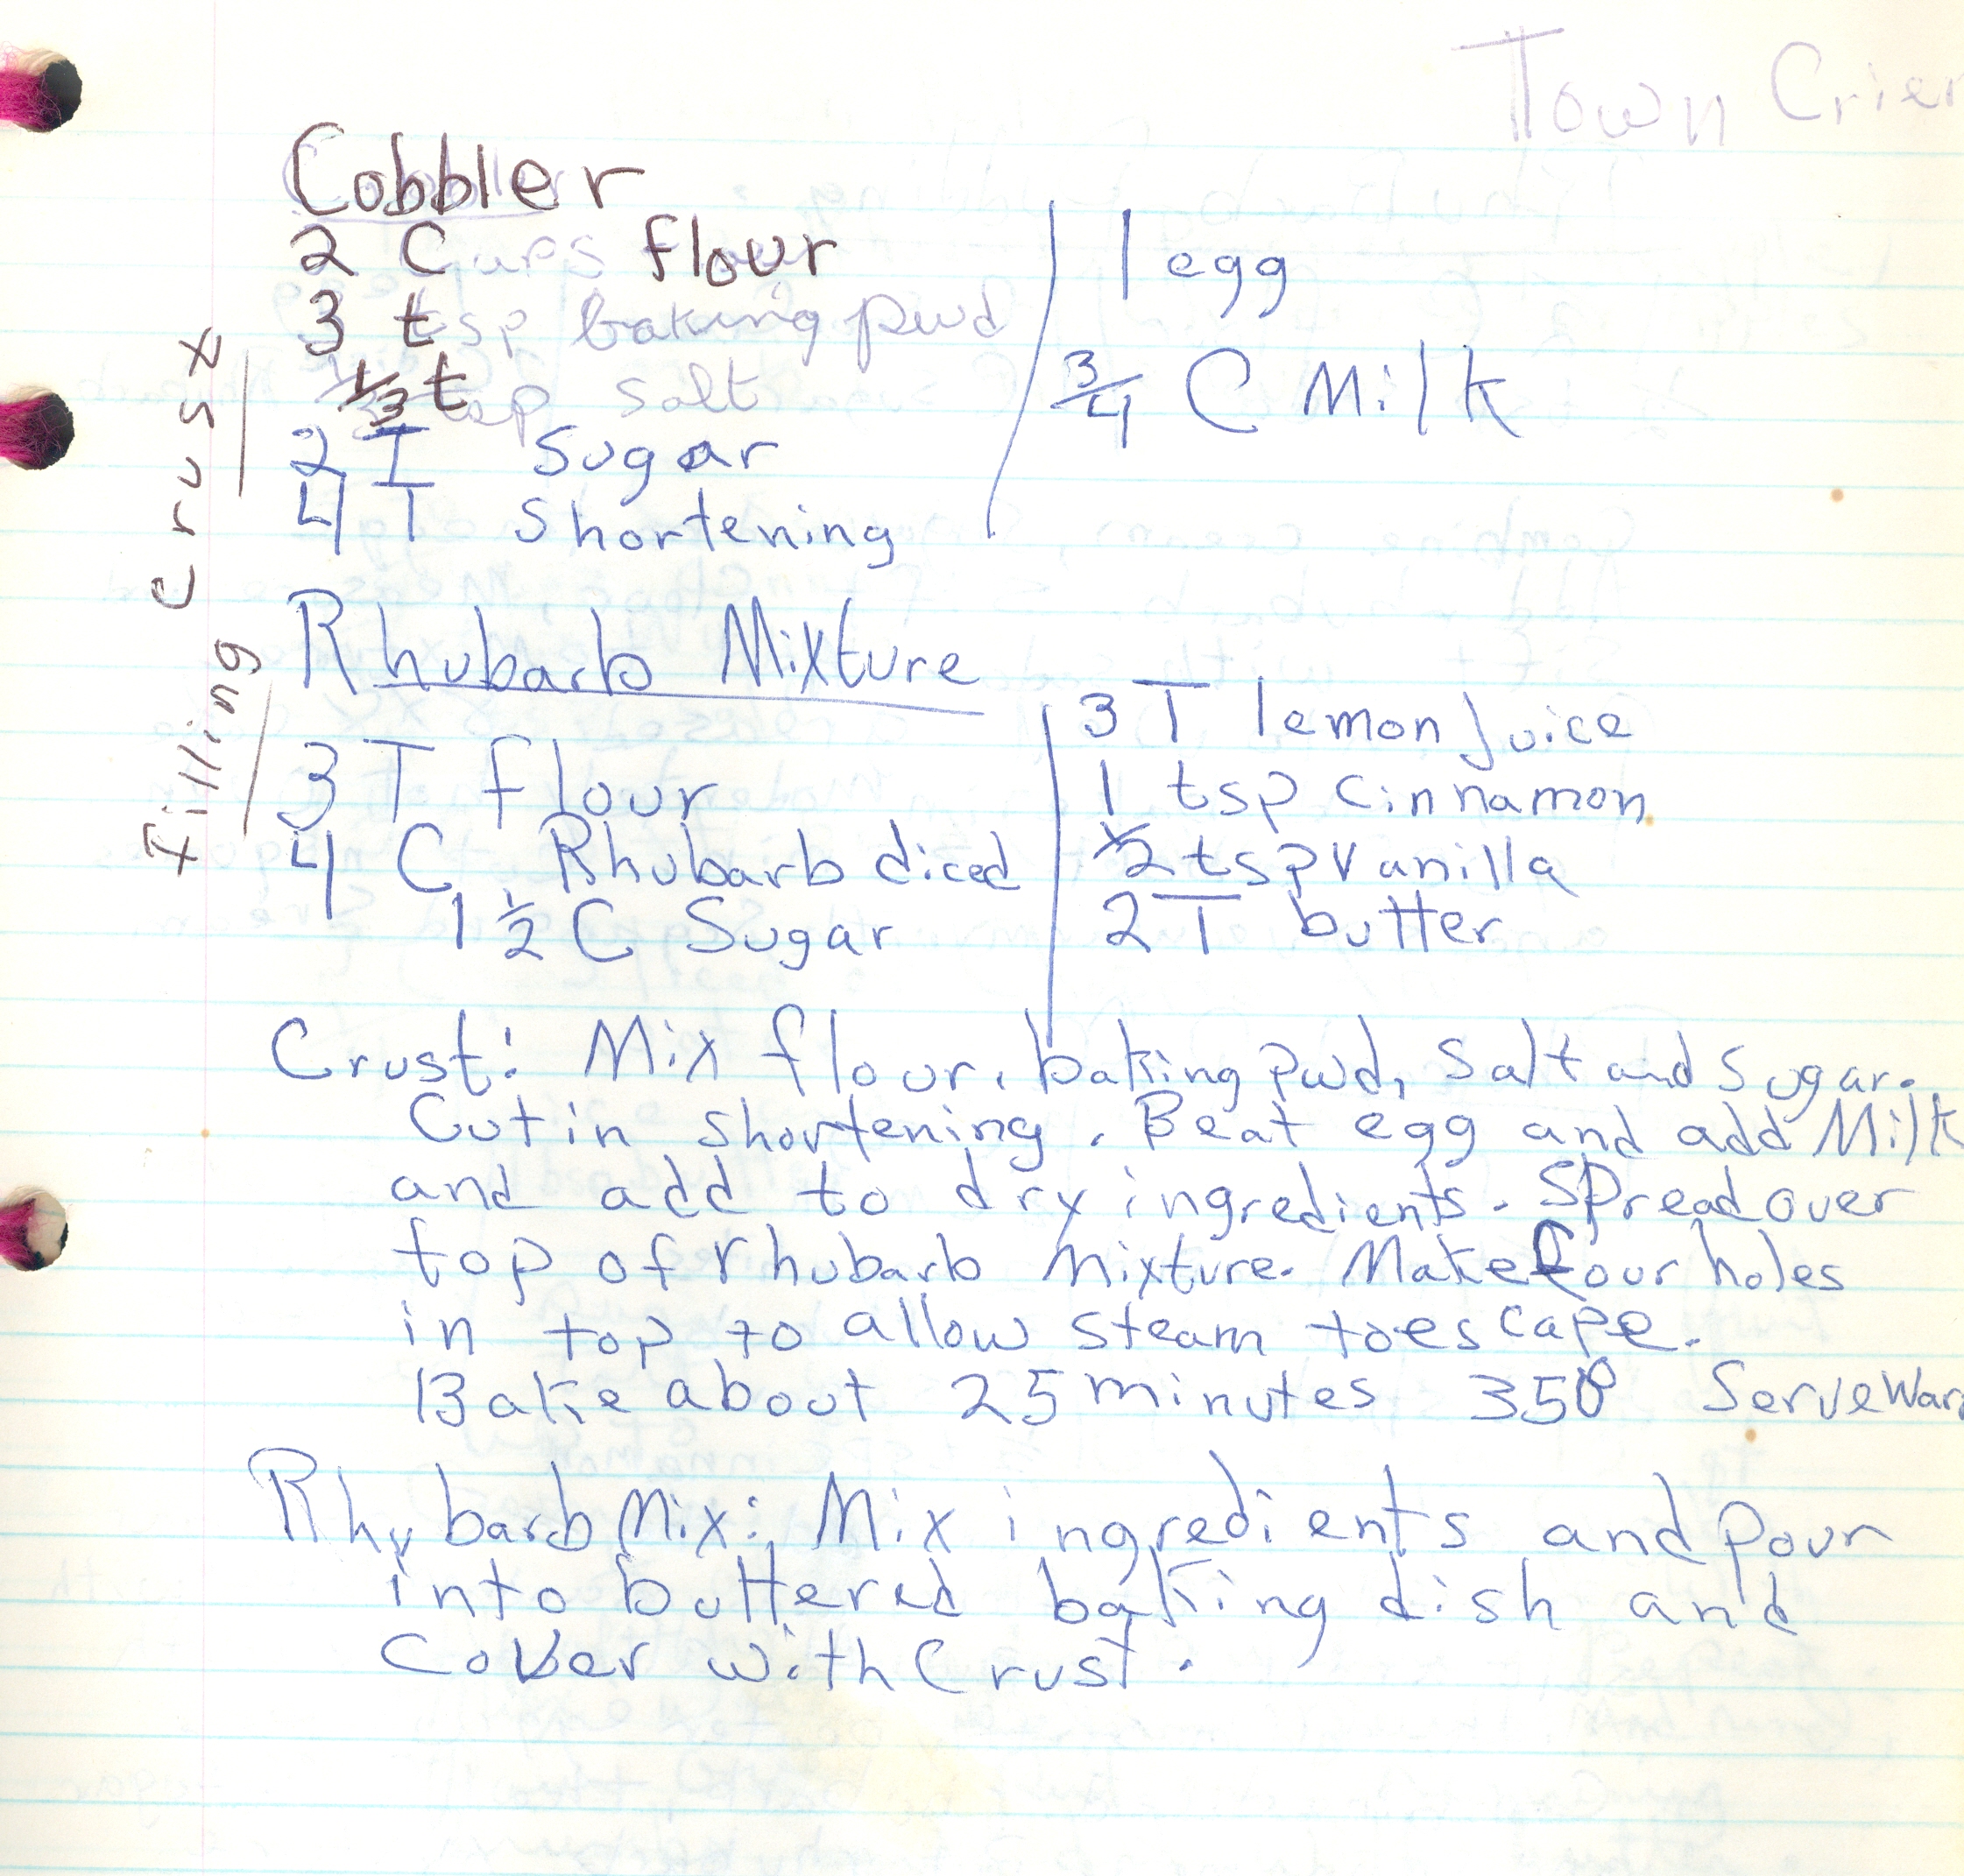 Town Crier
Cobbler
2 C flour
3 tsp baking pwd
1/3 tsp salt
2 T Sugar
4 T Shortening
1 egg
3/4 C Milk
Crust
Rhubarb Mixture
Filling
3 T flour
4 C Rhubarb diced
1 1/2 C Sugar
3 T lemon Juice
1 tsp Cinnamon
1/2 tsp Vanilla
2 T butter
Crust: Mix flour, baking pwd, Salt and Sugar.
Cut in shortening. Beat egg and add Milk
and add to dry ingredients. Spread over
top of rhubarb Mixture. Make four holes
in top to allow steam to escape.
Bake about 25 minutes 350° Serve Warm
Rhubarb Mix: Mix ingredients and pour
into buttered baking dish and
Cover with Crust.